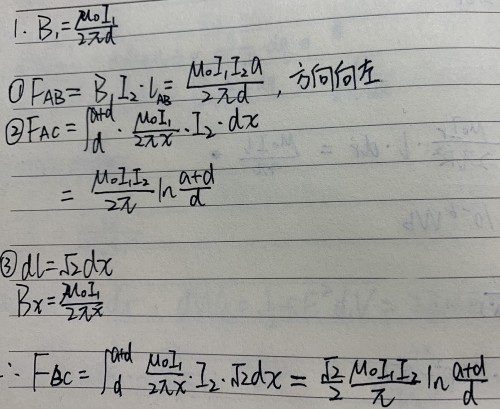 1. B₁ = μ₀I₁/2πd
① F_AB = B₁I₂·l_AB = μ₀I₁I₂a/2πd , 方向向左
② F_AC = ∫_d^{a+d} · μ₀I₁/2πx · I₂ · dx
= μ₀I₁I₂/2π ln (a+d)/d
③ dl = √2dx
Bx = μ₀I₁/2πx
∴ F_BC = ∫_d^{a+d} μ₀I₁/2πx · I₂ · √2dx = √2/2 μ₀I₁I₂/π ln (a+d)/d